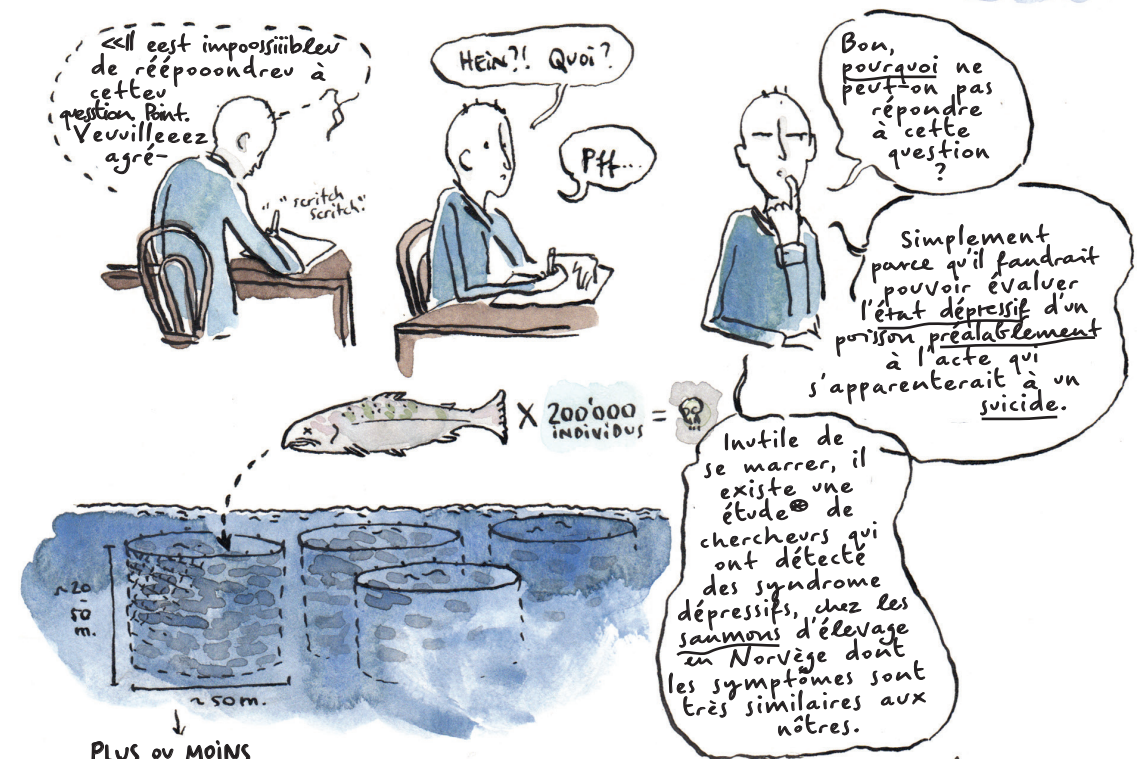 <<Il eest impoossiiibleu
de réépooondreu à
cetteu
question Point.
Veuuilleeez
agré-
"scritch
scritch"
HEIN?! QUOI?
Pff...
Bon,
pourquoi ne
peut-on pas
répondre
à cette
question
?
Simplement
parce qu'il faudrait
pouvoir évaluer
l'état dépressif d'un
poisson préalablement
à l'acte qui
s'apparenterait à un
suicide.
X 200'000 =
INDIVIDUS
Inutile de
se marrer, il
existe une
étude* de
chercheurs qui
ont détecté
des syndrome
dépressifs, chez les
saumons d'élevage
en Norvège dont
les symptômes sont
très similaires aux
nôtres.
~20
-
50
m.
~50m.
PLUS OU MOINS